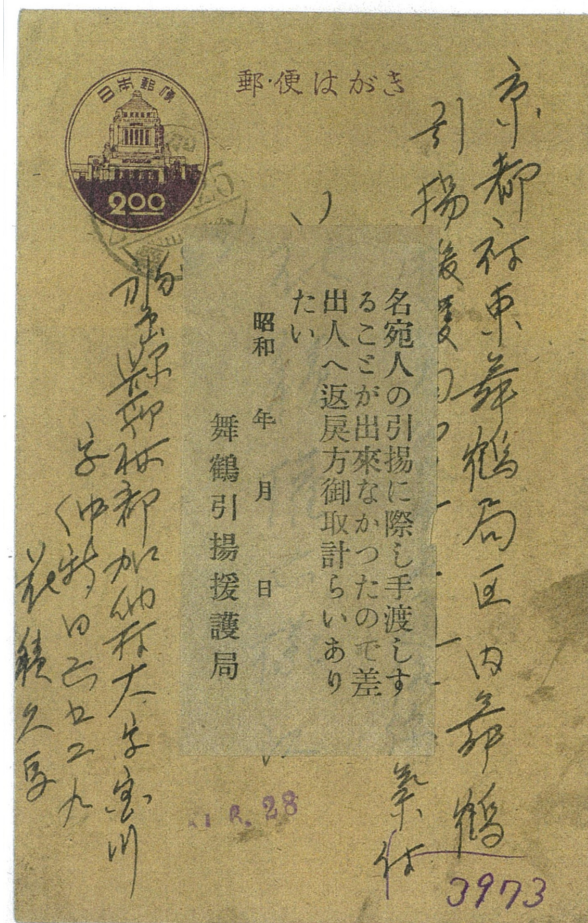 郵便はがき
日本郵便
2.00
京都府東舞鶴局区内舞鶴
引揚援
気付
名宛人の引揚に際し手渡しす
ることが出來なかつたので差
出人へ返戻方御取計らいあり
たい
昭和 年 月 日
舞鶴引揚援護局
郡加納村大字
字仲特田六七二九
久
28
3973